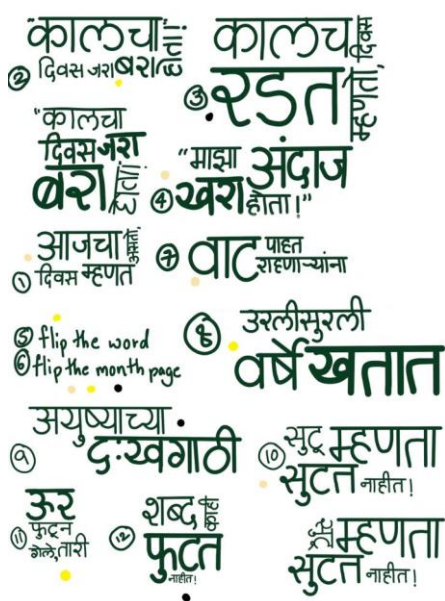 "कालचा
② दिवस जरा बरा होता!"
कालच
③ रडत म्हणतो, दिवस
"कालचा
दिवस जरा
बरा होता!
"माझा अंदाज
④ खरा होता!"
आजचा
① दिवस म्हणत
⑦ वाट पाहत
राहणाऱ्यांना
⑤ flip the word
⑥ flip the month page
⑧ उरलीसुरली
वर्षे खतात
अयुष्याच्या
⑨ दुःखगाठी
⑩ सुटू म्हणता
सुटत नाहीत!
ऊर
⑪ फुटून
गेले, तारी
शब्द
⑫ फुटत
नाहीत!
म्हणता
सुटत नाहीत!